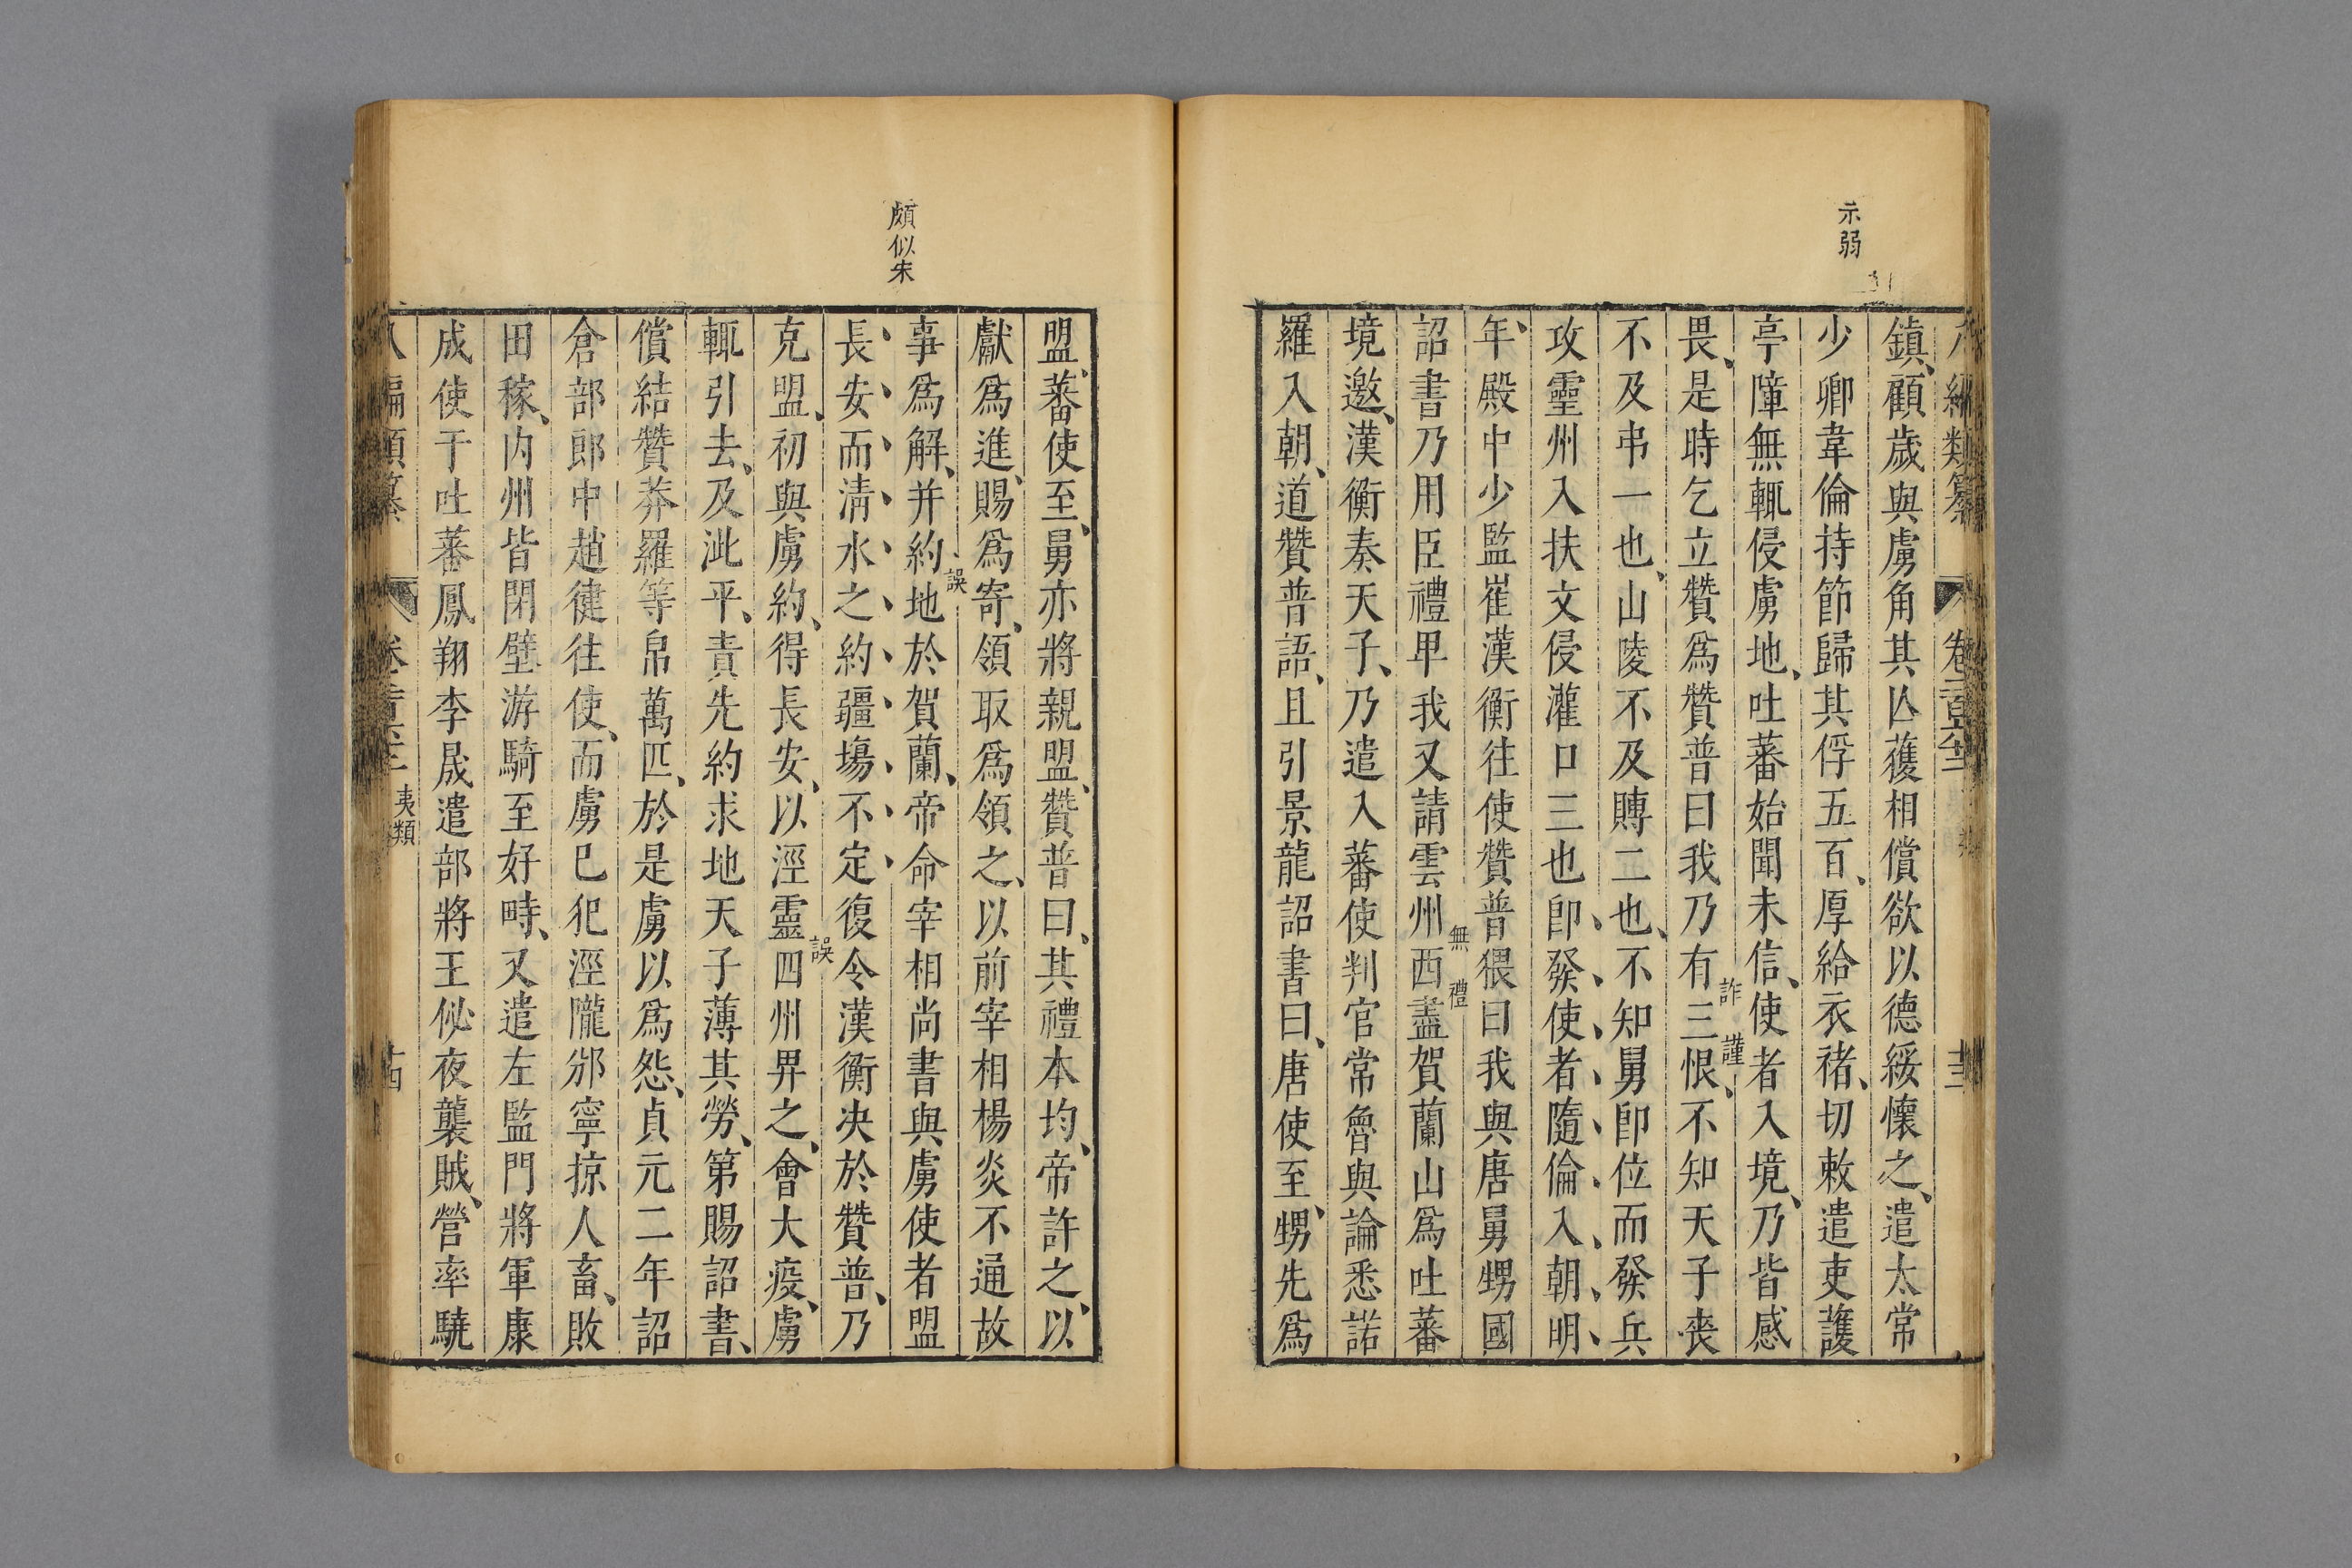 示弱
鎮、顧歲與虜角其亾獲相償欲以德綏懷之、遣太常
少卿韋倫持節歸其俘五百、厚給衣褚、切敕遣吏護
亭障無輒侵虜地、吐蕃始聞未信、使者入境、乃皆感
詐謹
畏、是時乞立贊爲贊普曰我乃有三恨、不知天子喪
不及弔一也、山陵不及賻二也、不知舅卽位而發兵
攻靈州入扶文侵灌口三也卽發使者隨倫入朝、明
年、殿中少監崔漢衡往使贊普猥曰我與唐舅甥國
無禮
詔書乃用臣禮卑我又請雲州西盡賀蘭山爲吐蕃
境、邀、漢衡奏天子、乃遣入蕃使判官常魯與論悉諾
羅入朝、道贊普語、且引景龍詔書曰、唐使至、甥先爲
頗似宋
盟、蕃使至、舅亦將親盟、贊普曰、其禮本均、帝許之、以
獻爲進、賜爲寄、領取爲領之、以前宰相楊炎不通故
誤
事爲解、并約地於賀蘭、帝命宰相尚書與虜使者盟
長安而淸水之約疆埸不定復令漢衡决於贊普、乃
誤
克盟、初與虜約、得長安、以涇靈四州畀之、會大疫、虜
輒引去、及泚平、責先約求地天子薄其勞、第賜詔書、
償結贊莽羅等帛萬匹、於是虜以爲怨、貞元二年詔
倉部郎中趙徤往使、而虜巳犯涇隴邠寧掠人畜、敗
田稼、內州皆閉壁游騎至好畤、又遣左監門將軍康
成使于吐蕃鳳翔李晟遣部將王佖夜襲賊、營率驍
夷類